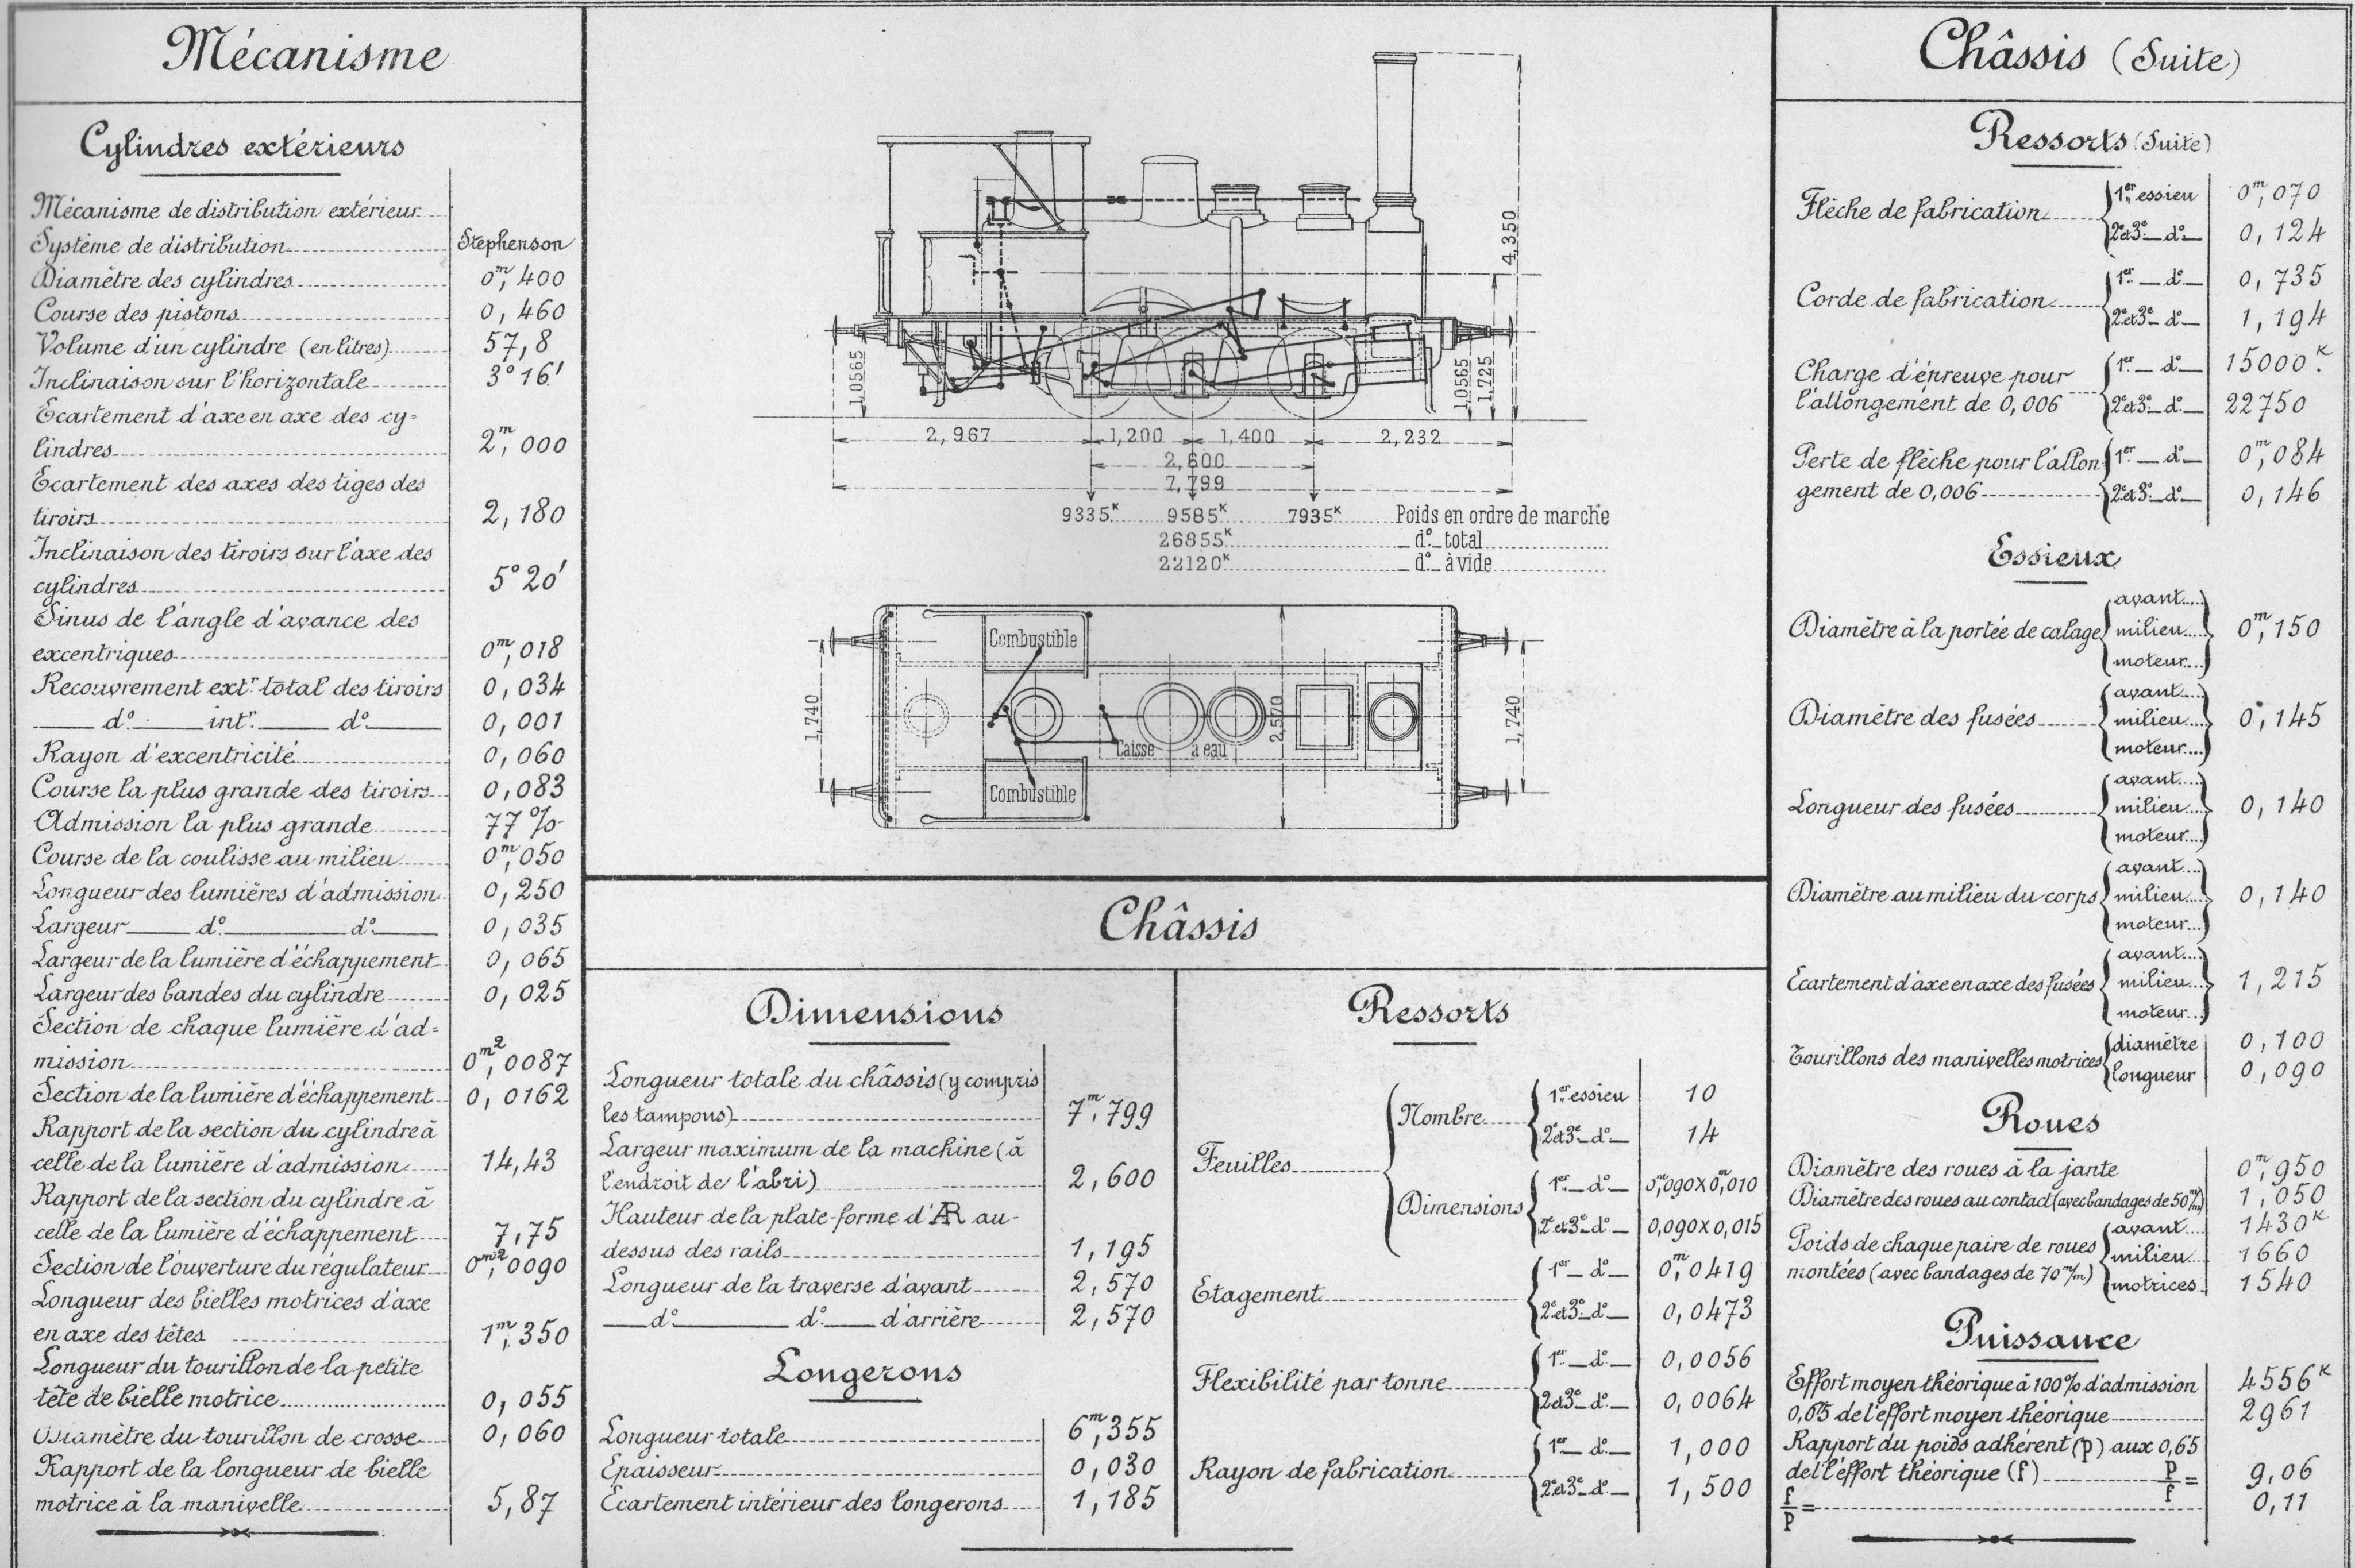 Mécanisme
Cylindres extérieurs
Mécanisme de distribution extérieur
Système de distribution Stephenson
Diamètre des cylindres 0m,400
Course des pistons 0,460
Volume d'un cylindre (en litres) 57,8
Inclinaison sur l'horizontale 3°16'
Ecartement d'axe en axe des cy=
lindres 2m,000
Ecartement des axes des tiges des
tiroirs 2,180
Inclinaison des tiroirs sur l'axe des
cylindres 5°20'
Sinus de l'angle d'avance des
excentriques 0m,018
Recouvrement extr. total des tiroirs 0,034
do intr. do 0,001
Rayon d'excentricité 0,060
Course la plus grande des tiroirs 0,083
Admission la plus grande 77%
Course de la coulisse au milieu 0m,050
Longueur des lumières d'admission 0,250
Largeur do do 0,035
Largeur de la lumière d'échappement 0,065
Largeur des bandes du cylindre 0,025
Section de chaque lumière d'ad=
mission 0m2,0087
Section de la lumière d'échappement 0,0162
Rapport de la section du cylindre à
celle de la lumière d'admission 14,43
Rapport de la section du cylindre à
celle de la lumière d'échappement 7,75
Section de l'ouverture du régulateur 0m2,0090
Longueur des bielles motrices d'axe
en axe des têtes 1m,350
Longueur du tourillon de la petite
tête de bielle motrice 0,055
Diamètre du tourillon de crosse 0,060
Rapport de la longueur de bielle
motrice à la manivelle 5,87
4,350
1,0565
1,0565
1,725
2,967 1,200 1,400 2,232
2,600
7,799
9335K 9585K 7935K Poids en ordre de marche
26855K do total
22120K do à vide
Combustible
1,740
2,570
1,740
Caisse à eau
Combustible
Châssis
Dimensions
Longueur totale du châssis (y compris
les tampons) 7m,799
Largeur maximum de la machine (à
l'endroit de l'abri) 2,600
Hauteur de la plate-forme d'AR au-
dessus des rails 1,195
Longueur de la traverse d'avant 2,570
do do d'arrière 2,570
Longerons
Longueur totale 6m,355
Epaisseur 0,030
Ecartement intérieur des longerons 1,185
Ressorts
Feuilles
Nombre
1er essieu 10
2e et 3e do 14
Dimensions
1er do 0m,090x0m,010
2e et 3e do 0,090x0,015
Etagement
1er do 0m,0419
2e et 3e do 0,0473
Flexibilité par tonne
1er do 0,0056
2e et 3e do 0,0064
Rayon de fabrication
1er do 1,000
2e et 3e do 1,500
Châssis (Suite)
Ressorts (Suite)
Flèche de fabrication
1er essieu 0m,070
2e et 3e do 0,124
Corde de fabrication
1er do 0,735
2e et 3e do 1,194
Charge d'épreuve pour
l'allongement de 0,006
1er do 15000K
2e et 3e do 22750
Perte de flèche pour l'allon
gement de 0,006
1er do 0m,084
2e et 3e do 0,146
Essieux
avant
Diamètre à la portée de calage milieu 0m,150
moteur
avant
Diamètre des fusées milieu 0,145
moteur
avant
Longueur des fusées milieu 0,140
moteur
avant
Diamètre au milieu du corps milieu 0,140
moteur
avant
Ecartement d'axe en axe des fusées milieu 1,215
moteur
Tourillons des manivelles motrices
diamètre 0,100
longueur 0,090
Roues
Diamètre des roues à la jante 0m,950
Diamètre des roues au contact (avec bandages de 50m/m) 1,050
Poids de chaque paire de roues
montées (avec bandages de 70m/m)
avant 1430K
milieu 1660
motrices 1540
Puissance
Effort moyen théorique à 100% d'admission 4556K
0,65 de l'effort moyen théorique 2961
Rapport du poids adhérent (p) aux 0,65
de l'effort théorique (f) p/f = 9,06
f/p = 0,11